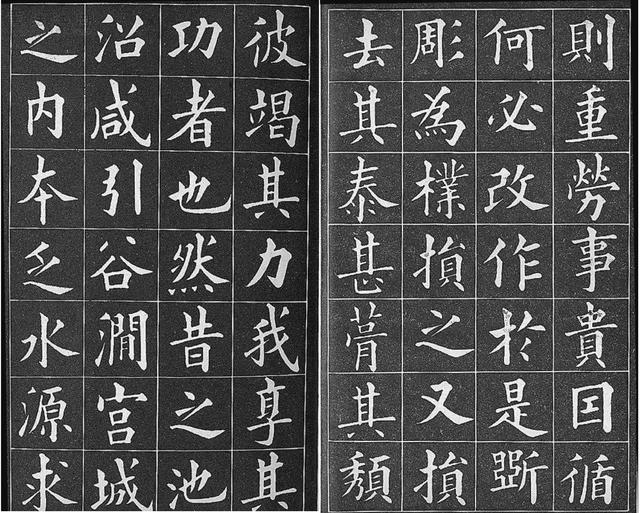 則重勞事貴囙循
何必改作於是斲
彫為樸損之又損
去其泰甚葺其頹
彼竭其力我享其
功者也然昔之池
沼咸引谷澗宮城
之內本乏水源求